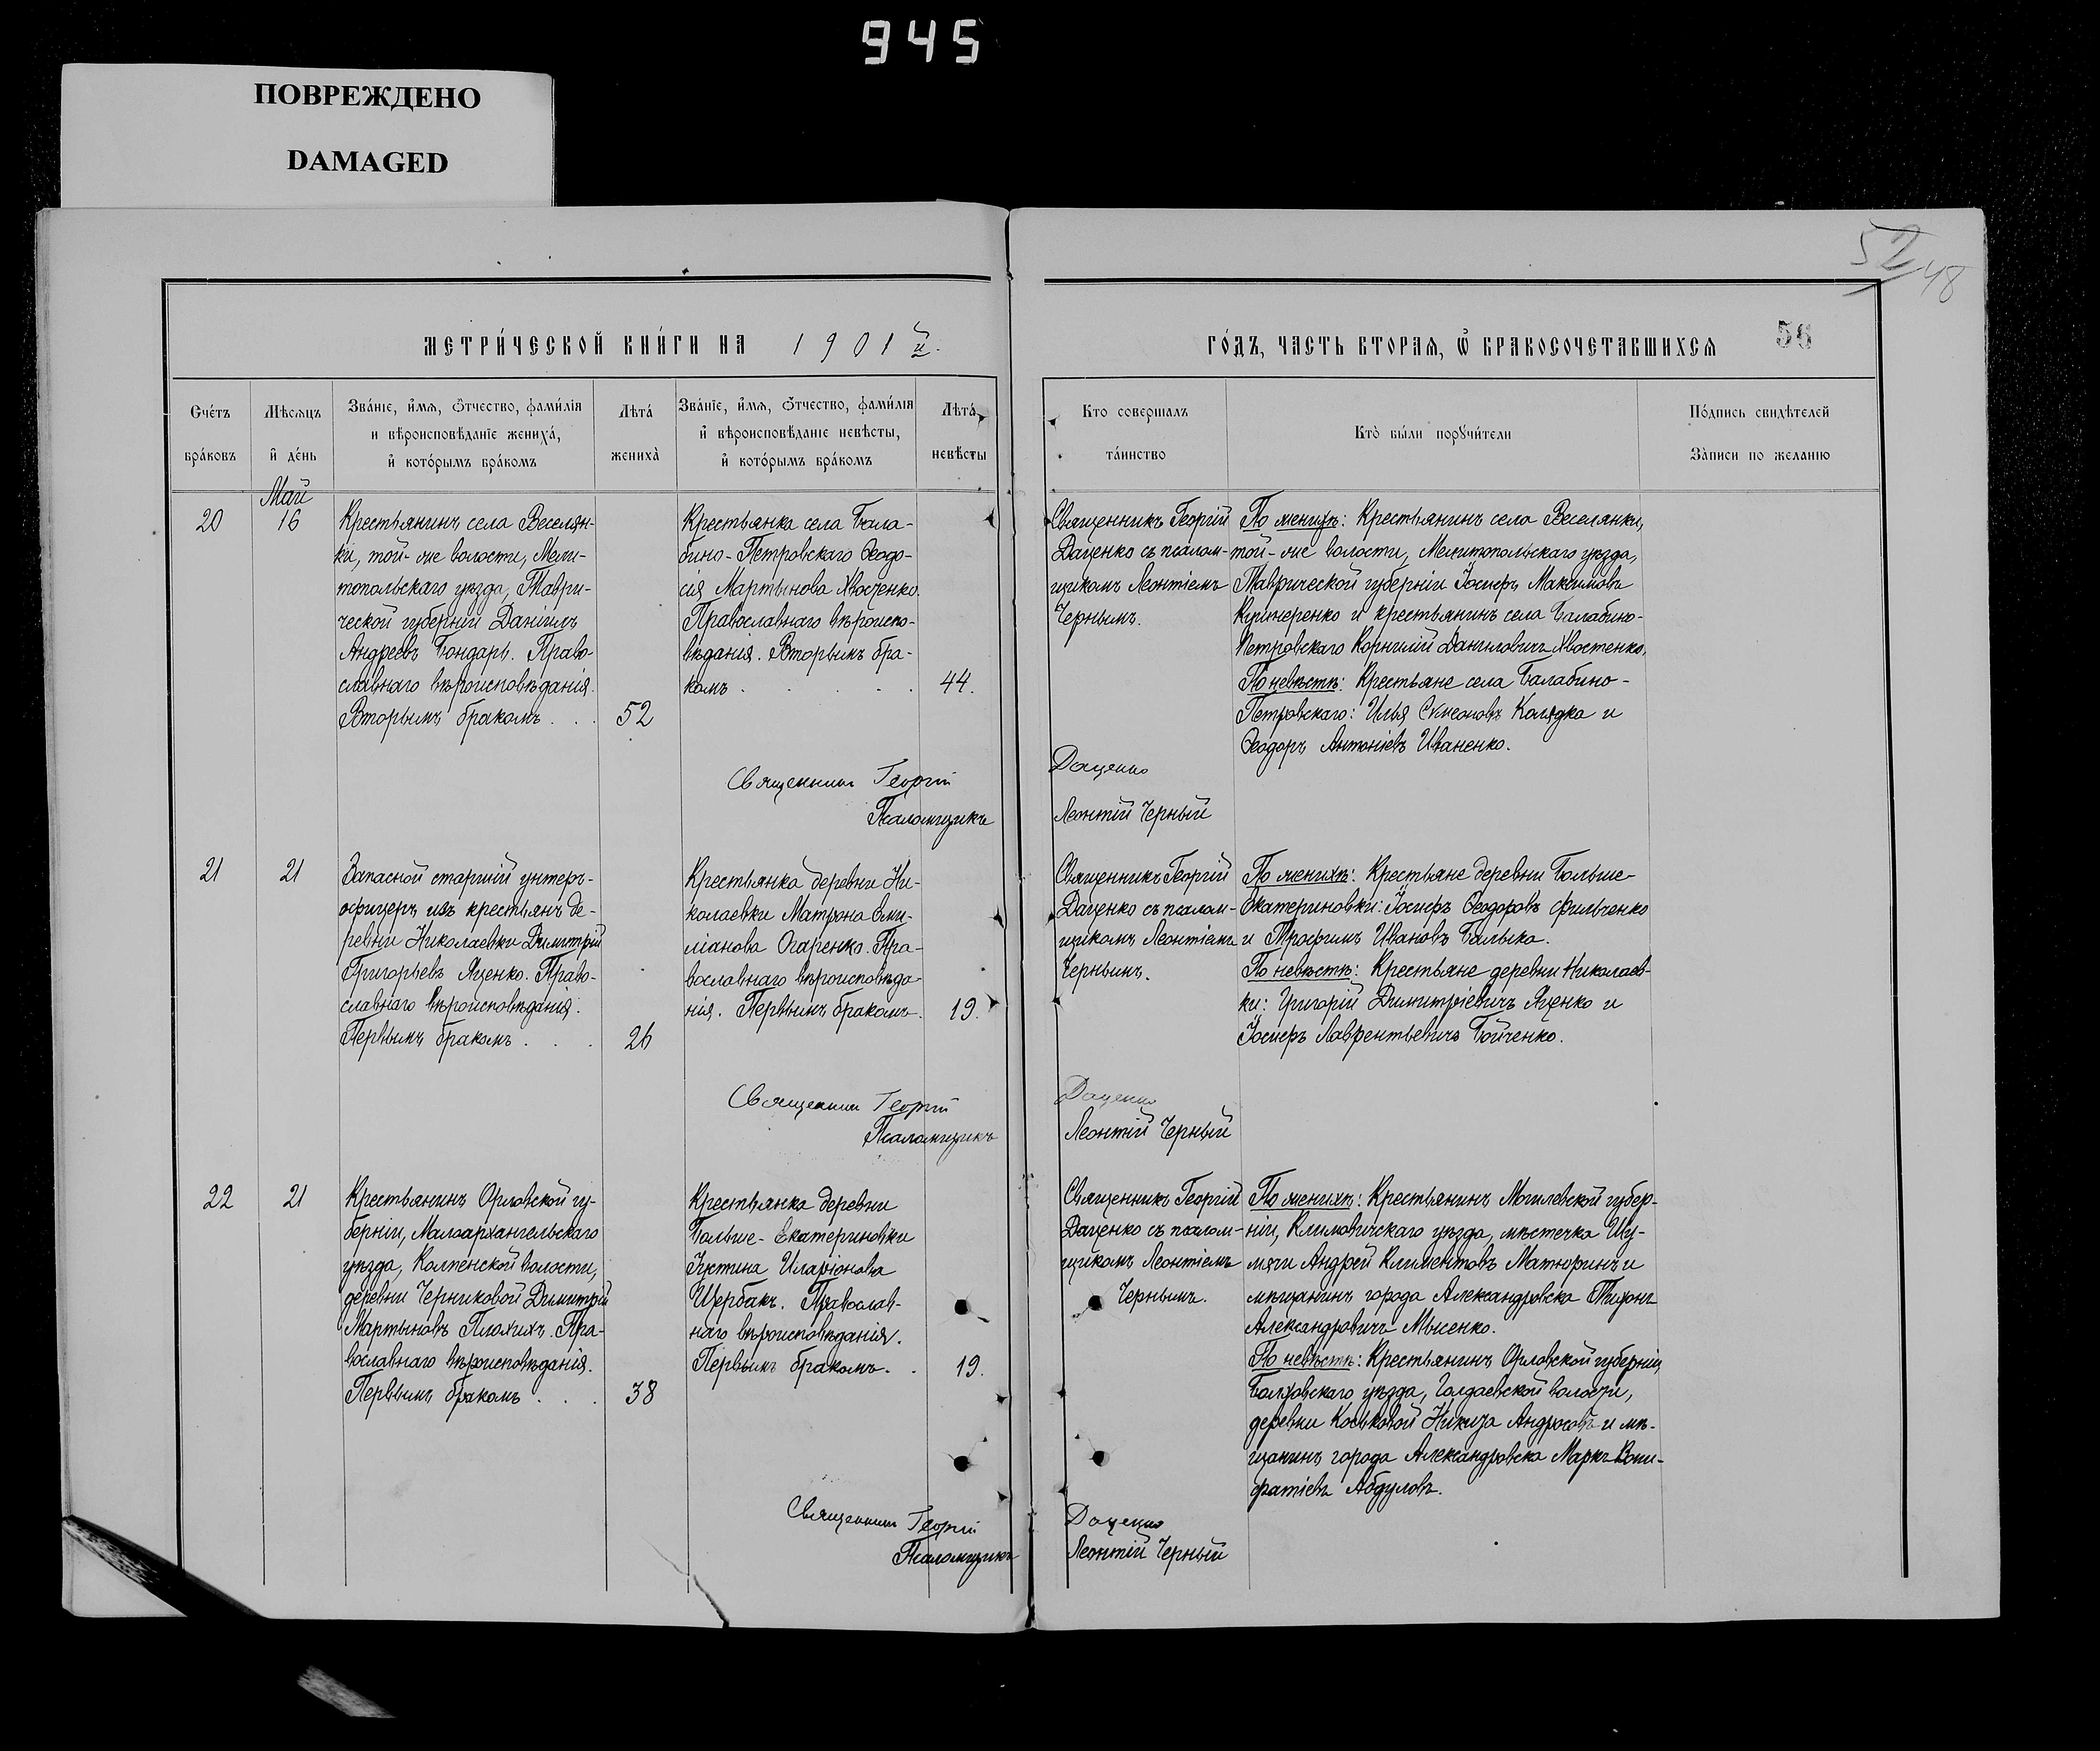 945
ПОВРЕЖДЕНО
DAMAGED
52
48
МЕТРИ́ЧЕСКОЙ КНИ́ГИ НА 1901й.
ГО́ДЪ, ЧАСТЬ ВТОРАѦ, Ѽ БРАКОСОЧЕТАВШИХСѦ
56
Сче́тъ бра́ковъ
Мѣсѧцъ и҆ де́нь
Зва́нїе, и҆́мѧ, ѻ҆́тчество, фами́лїѧ
и вѣроисповѣданїе жениха́,
и҆ кото́рымъ бра́комъ
Лѣта́ жениха̀
Зва́нїе, и҆́мѧ, ѻ҆́тчество, фами́лїѧ
и҆ вѣроисповѣданїе невѣсты,
и҆ кото́рымъ бра́комъ
Лѣта̀ невѣ́сты
Кто соверша́лъ
та́инство
Кто̀ бы́ли порꙋчи́тели
По́дпись свидѣ́телей
За̀писи по жела́нію
Май
20
16
Крестьянинъ села Веселян-
ки, той-же волости, Мели-
топольскаго уѣзда, Таври-
ческой губерніи Даніилъ
Андреевъ Бондарь. Право-
славнаго вѣроисповѣданія.
Вторымъ бракомъ . . .
52
Крестьянка села Бала-
бино-Петровскаго Ѳеодо-
сія Мартынова Хвостенко.
Православнаго вѣроиспо-
вѣданія. Вторымъ бра-
комъ . . . . .
44.
Священникъ Георгій
Даценко съ псалом-
щикомъ Леонтіемъ
Чернымъ.
По женихѣ: Крестьянинъ села Веселянки,
той-же волости, Мелитопольскаго уѣзда,
Таврической губерніи Іосифъ Максимовъ
Кушнеренко и крестьянинъ села Балабино-
Петровскаго Корнилій Даниловичъ Хвостенко.
По невѣстѣ: Крестьяне села Балабино-
Петровскаго: Илья Сѵмеоновъ Колядка и
Ѳеодоръ Антоніевъ Иваненко.
Священникъ Георгій Даценко
Псаломщикъ Леонтій Черный
21
21
Запасной старшій унтеръ-
офицеръ изъ крестьянъ де-
ревни Николаевки Димитрій
Григорьевъ Яценко. Право-
славнаго вѣроисповѣданія.
Первымъ бракомъ . . .
26
Крестьянка деревни Ни-
колаевки Матрона Еми-
ліанова Огаренко. Пра-
вославнаго вѣроисповѣда-
нія. Первымъ бракомъ.
19.
Священникъ Георгій
Даценко съ псалом-
щикомъ Леонтіемъ
Чернымъ.
По женихѣ: Крестьяне деревни Больше-
Екатериновки: Іосифъ Ѳеодоровъ Фильченко
и Трофимъ Ивановъ Балыка.
По невѣстѣ: Крестьяне деревни Николаев-
ки: Григорій Димитріевичъ Яценко и
Іосифъ Лаврентьевичъ Бойченко.
Священникъ Георгій Даценко
Псаломщикъ Леонтій Черный
22
21
Крестьянинъ Орловской гу-
берніи, Малоархангельскаго
уѣзда, Колпенской волости,
деревни Черниковой Димитрій
Мартыновъ Плохихъ. Пра-
вославнаго вѣроисповѣданія.
Первымъ бракомъ . . .
38
Крестьянка деревни
Больше-Екатериновки
Іустина Иларіонова
Щербакъ. Православ-
наго вѣроисповѣданія.
Первымъ бракомъ. .
19.
Священникъ Георгій
Даценко съ псалом-
щикомъ Леонтіемъ
Чернымъ.
По женихѣ: Крестьянинъ Могилевской губер-
ніи, Климовичскаго уѣзда, мѣстечка Шу-
мячи Андрей Климентовъ Матюринъ и
мѣщанинъ города Александровска Тихонъ
Александровичъ Мысенко.
По невѣстѣ: Крестьянинъ Орловской губерніи,
Болховскаго уѣзда, Голдаевской волости,
деревни Коньковой Никита Андросовъ и мѣ-
щанинъ города Александровска Маркъ Вони-
фатіевъ Абдуловъ.
Священникъ Георгій Даценко
Псаломщикъ Леонтій Черный